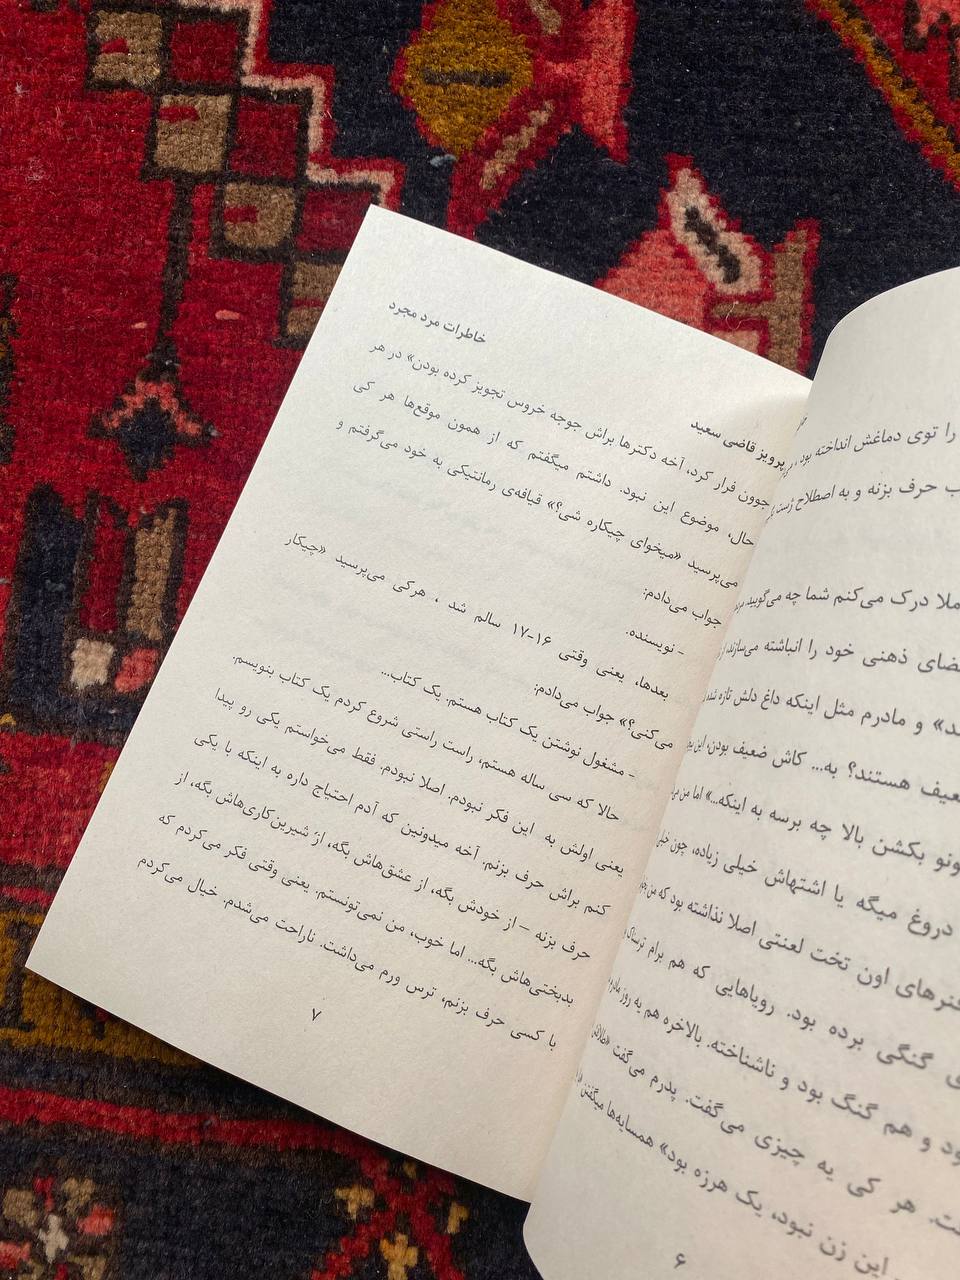 را توی دماغش انداخته بود ،
حرف بزنه و به اصطلاح ژست
درک می‌کنم شما چه می‌گویید.
ذهنی خود را انباشته می‌سازند،
و مادرم مثل اینکه داغ دلش تازه شده
هستند؟ به... کاش ضعیف بودن، این
بکشن بالا چه برسه به اینکه...» اما من
دروغ میگه یا اشتهاش خیلی زیاده، چون
فنرهای اون تخت لعنتی اصلا نذاشته بود که من
گنگی برده بود. رویاهایی که هم برام ترسناک
و هم گنگ بود و ناشناخته. بالاخره هم یه روز مادرم
هر کی یه چیزی می‌گفت. پدرم می‌گفت
این زن نبود، یک هرزه بود» همسایه‌ها میگفتن
۶
پرویز قاضی سعید
خاطرات مرد مجرد
جوون فرار کرد، آخه دکترها براش جوجه خروس تجویز کرده بودن» در هر
حال، موضوع این نبود. داشتم میگفتم که از همون موقع‌ها هر کی
می‌پرسید «میخوای چیکاره شی؟» قیافه‌ی رمانتیکی به خود می‌گرفتم و
جواب می‌دادم:
- نویسنده.
بعدها، یعنی وقتی ۱۶-۱۷ سالم شد ، هرکی می‌پرسید «چیکار
می‌کنی؟» جواب می‌دادم:
- مشغول نوشتن یک کتاب هستم. یک کتاب...
حالا که سی ساله هستم، راست راستی شروع کردم یک کتاب بنویسم.
یعنی اولش به این فکر نبودم. اصلا نبودم. فقط می‌خواستم یکی رو پیدا
کنم براش حرف بزنم. آخه میدونین که آدم احتیاج داره به اینکه با یکی
حرف بزنه – از خودش بگه، از عشق‌هاش بگه، از شیرین‌کاری‌هاش بگه، از
بدبختی‌هاش بگه... اما خوب، من نمی‌تونستم. یعنی وقتی فکر می‌کردم که
با کسی حرف بزنم، ترس ورم می‌داشت. ناراحت می‌شدم. خیال می‌کردم
۷